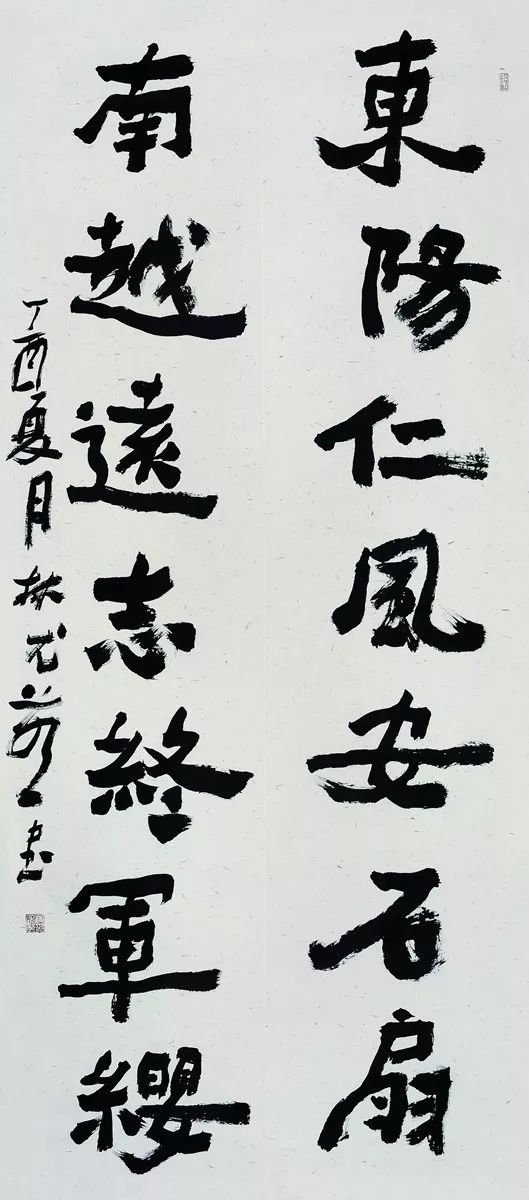 東陽仁風安石扇
南越遠志終軍纓
丁酉夏月林尤葵書